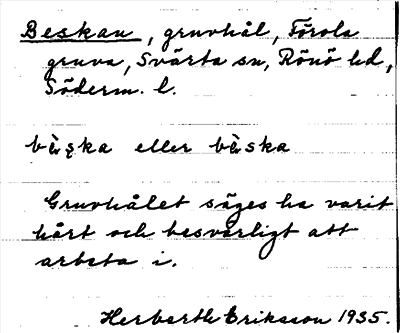 Beskan, gruvhål, Förola
gruva, Svärta sn, Rönö hd,
Söderm. l.
bèska eller bèska
Gruvhålet säges ha varit
hårt och besvärligt att
arbeta i.
Herbert Eriksson 1935.